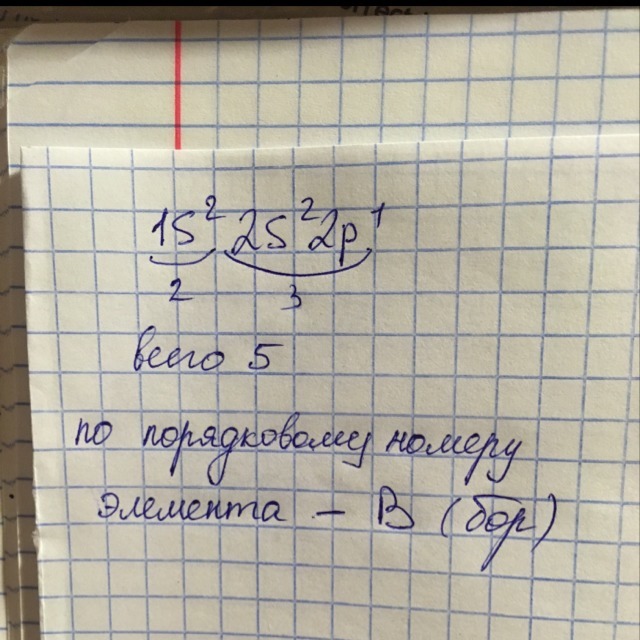 1s² 2s² 2p¹
2 3
всего 5
по порядковому номеру
элемента – B (бор)